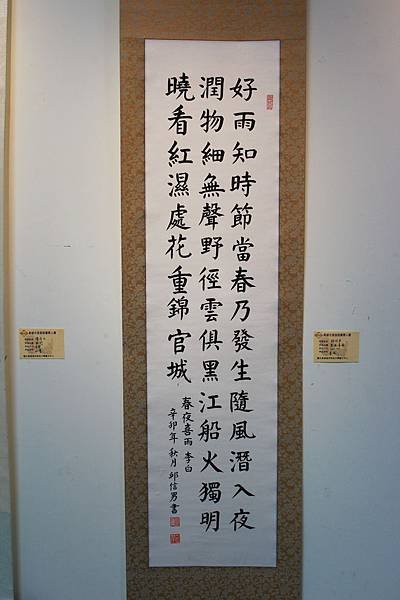 好雨知時節當春乃發生隨風潛入夜
潤物細無聲野徑雲俱黑江船火獨明
曉看紅濕處花重錦官城
春夜喜雨 李白
辛卯年秋月邱信男書